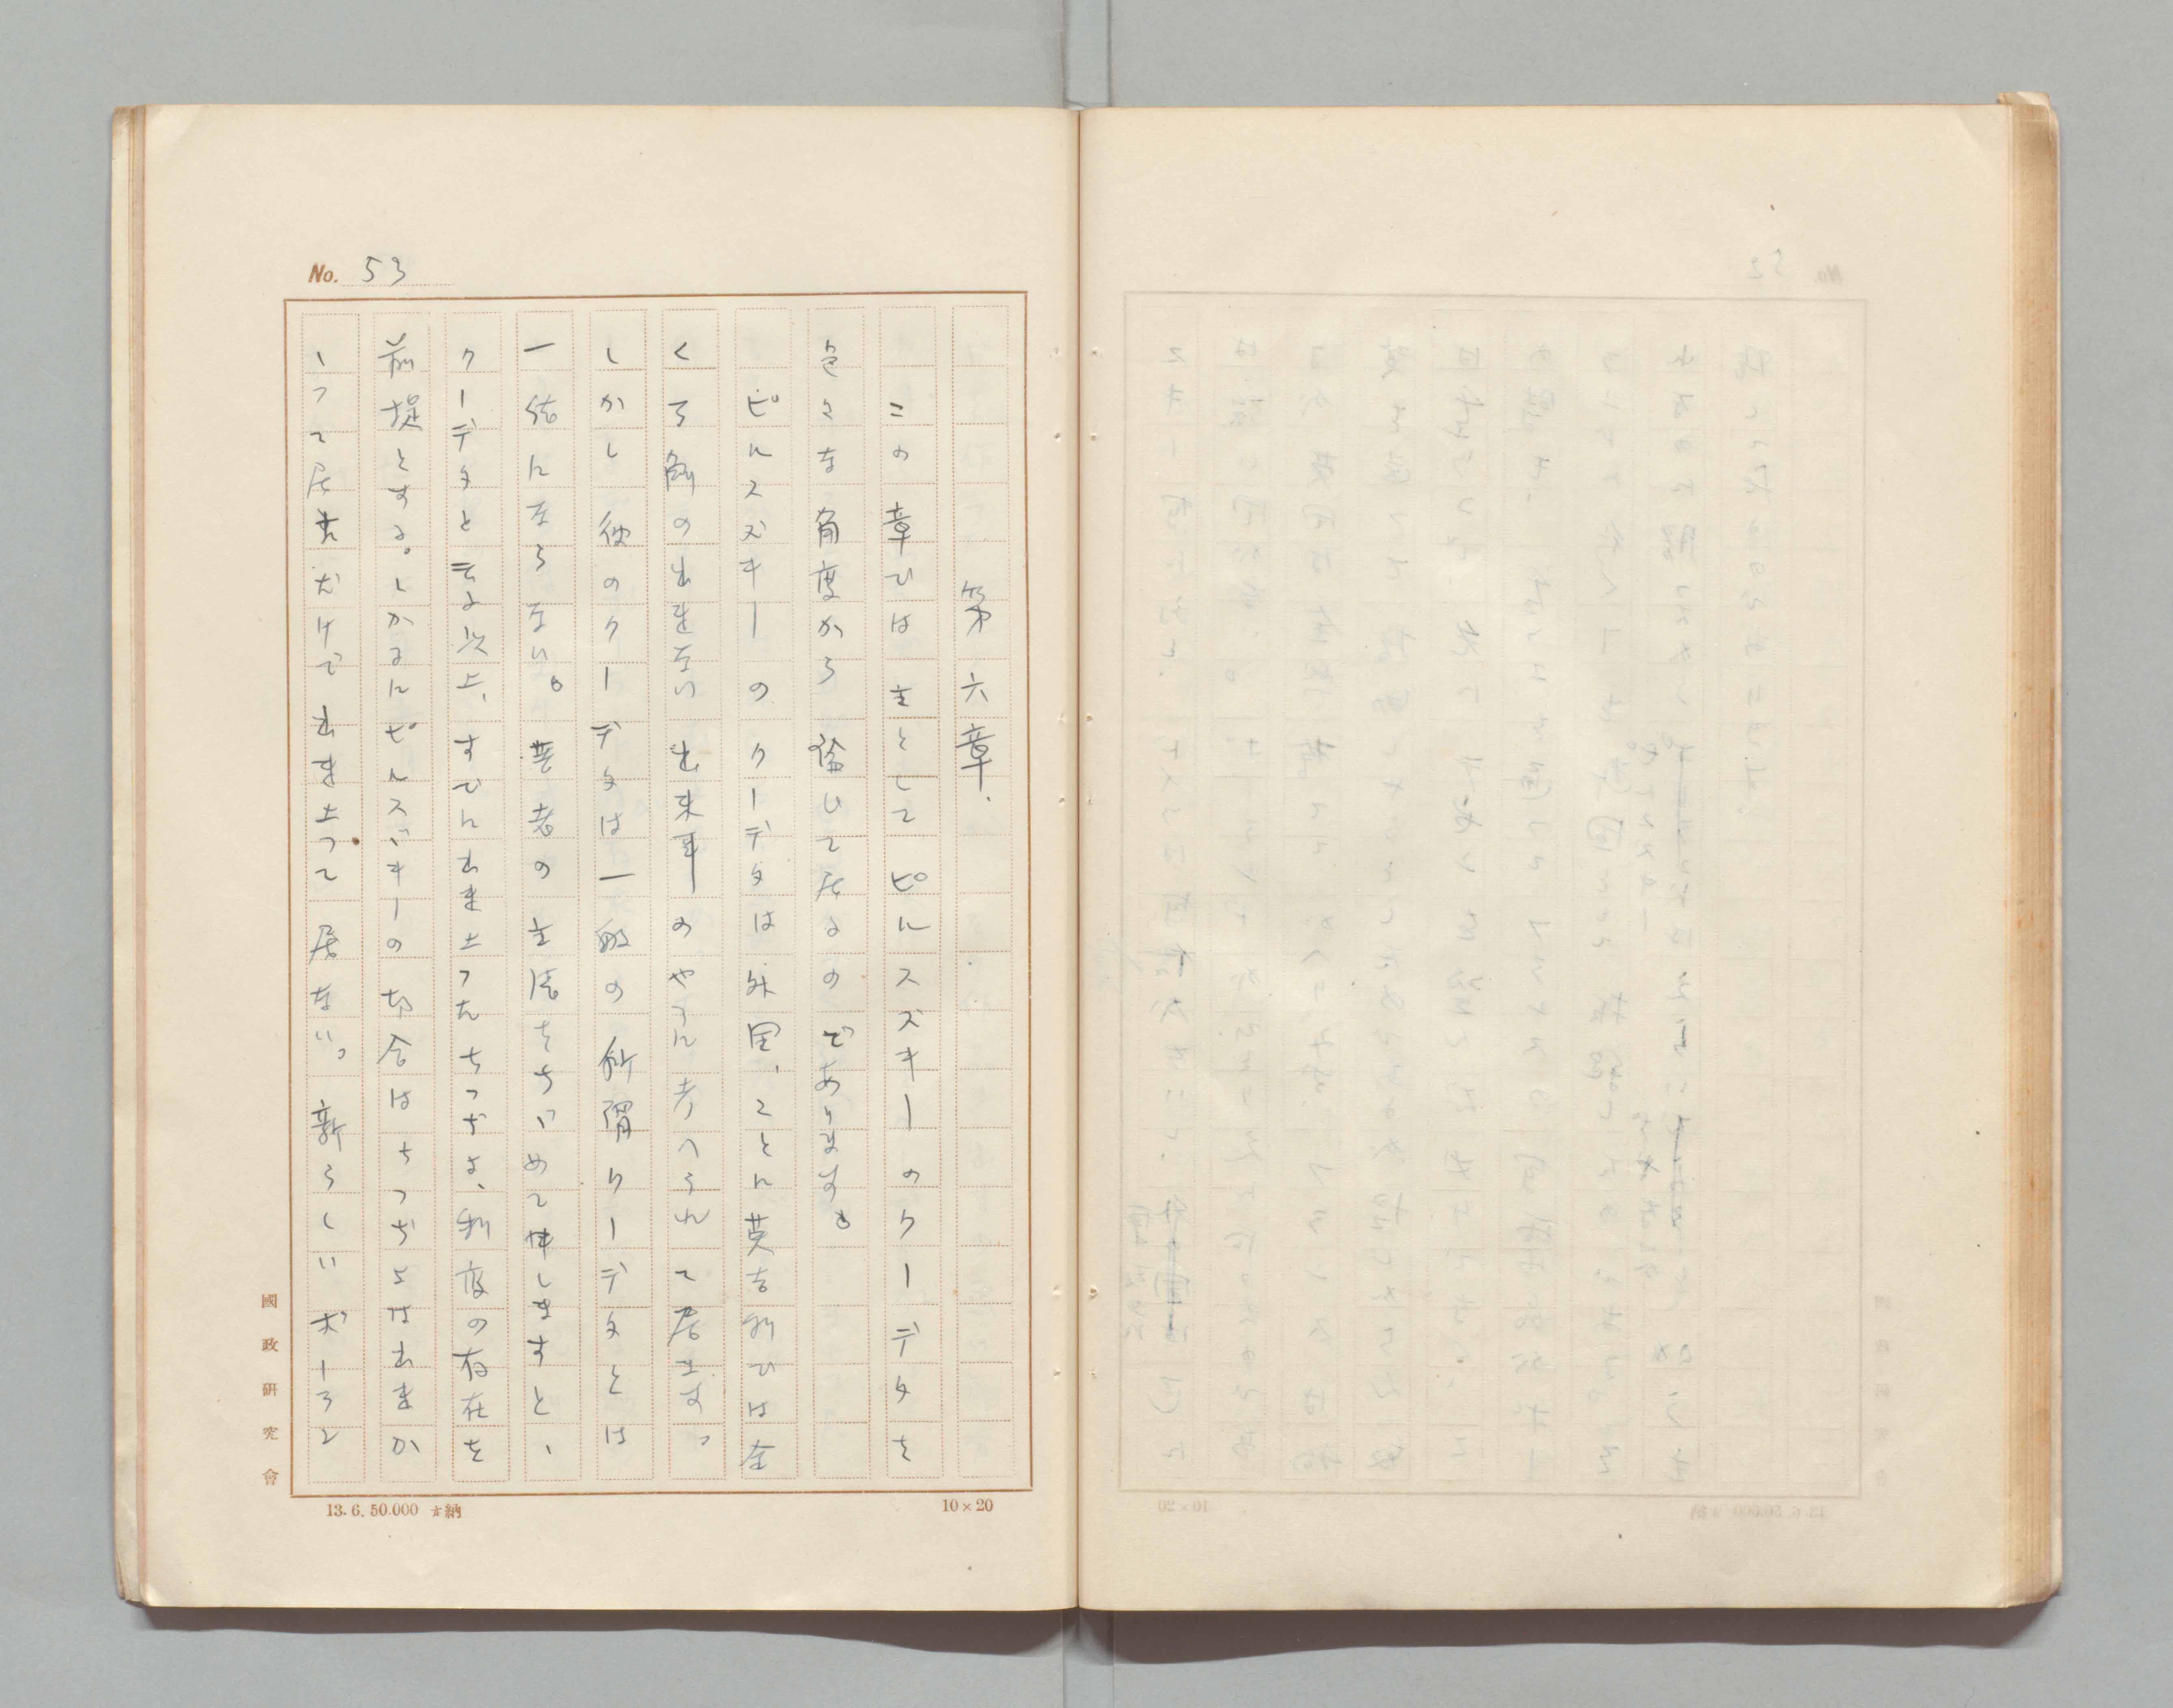 No. 53
第六章、
この章では主としてピルスズキーのクーデタを
色々な角度から論じて居るのであります。
ピルスズキーのクーデタは外国、ことに英吉利では全
く了解の出来ない出来事のやうに考へられて居ます。
しかし彼のクーデタは一般の所謂クーデタとは
一緒にならない。著者の主張をちゞめて申しますと、
クーデタと云ふ以上、すでに出来上つたちつぢよ、制度の存在を
前提とする。しかるにピルスズキーの場合はちつぢよは出来か
ゝつて居ただけで出来上つて居ない。新らしいポーラン
國政研究會
13. 6. 50.000 納
10×20